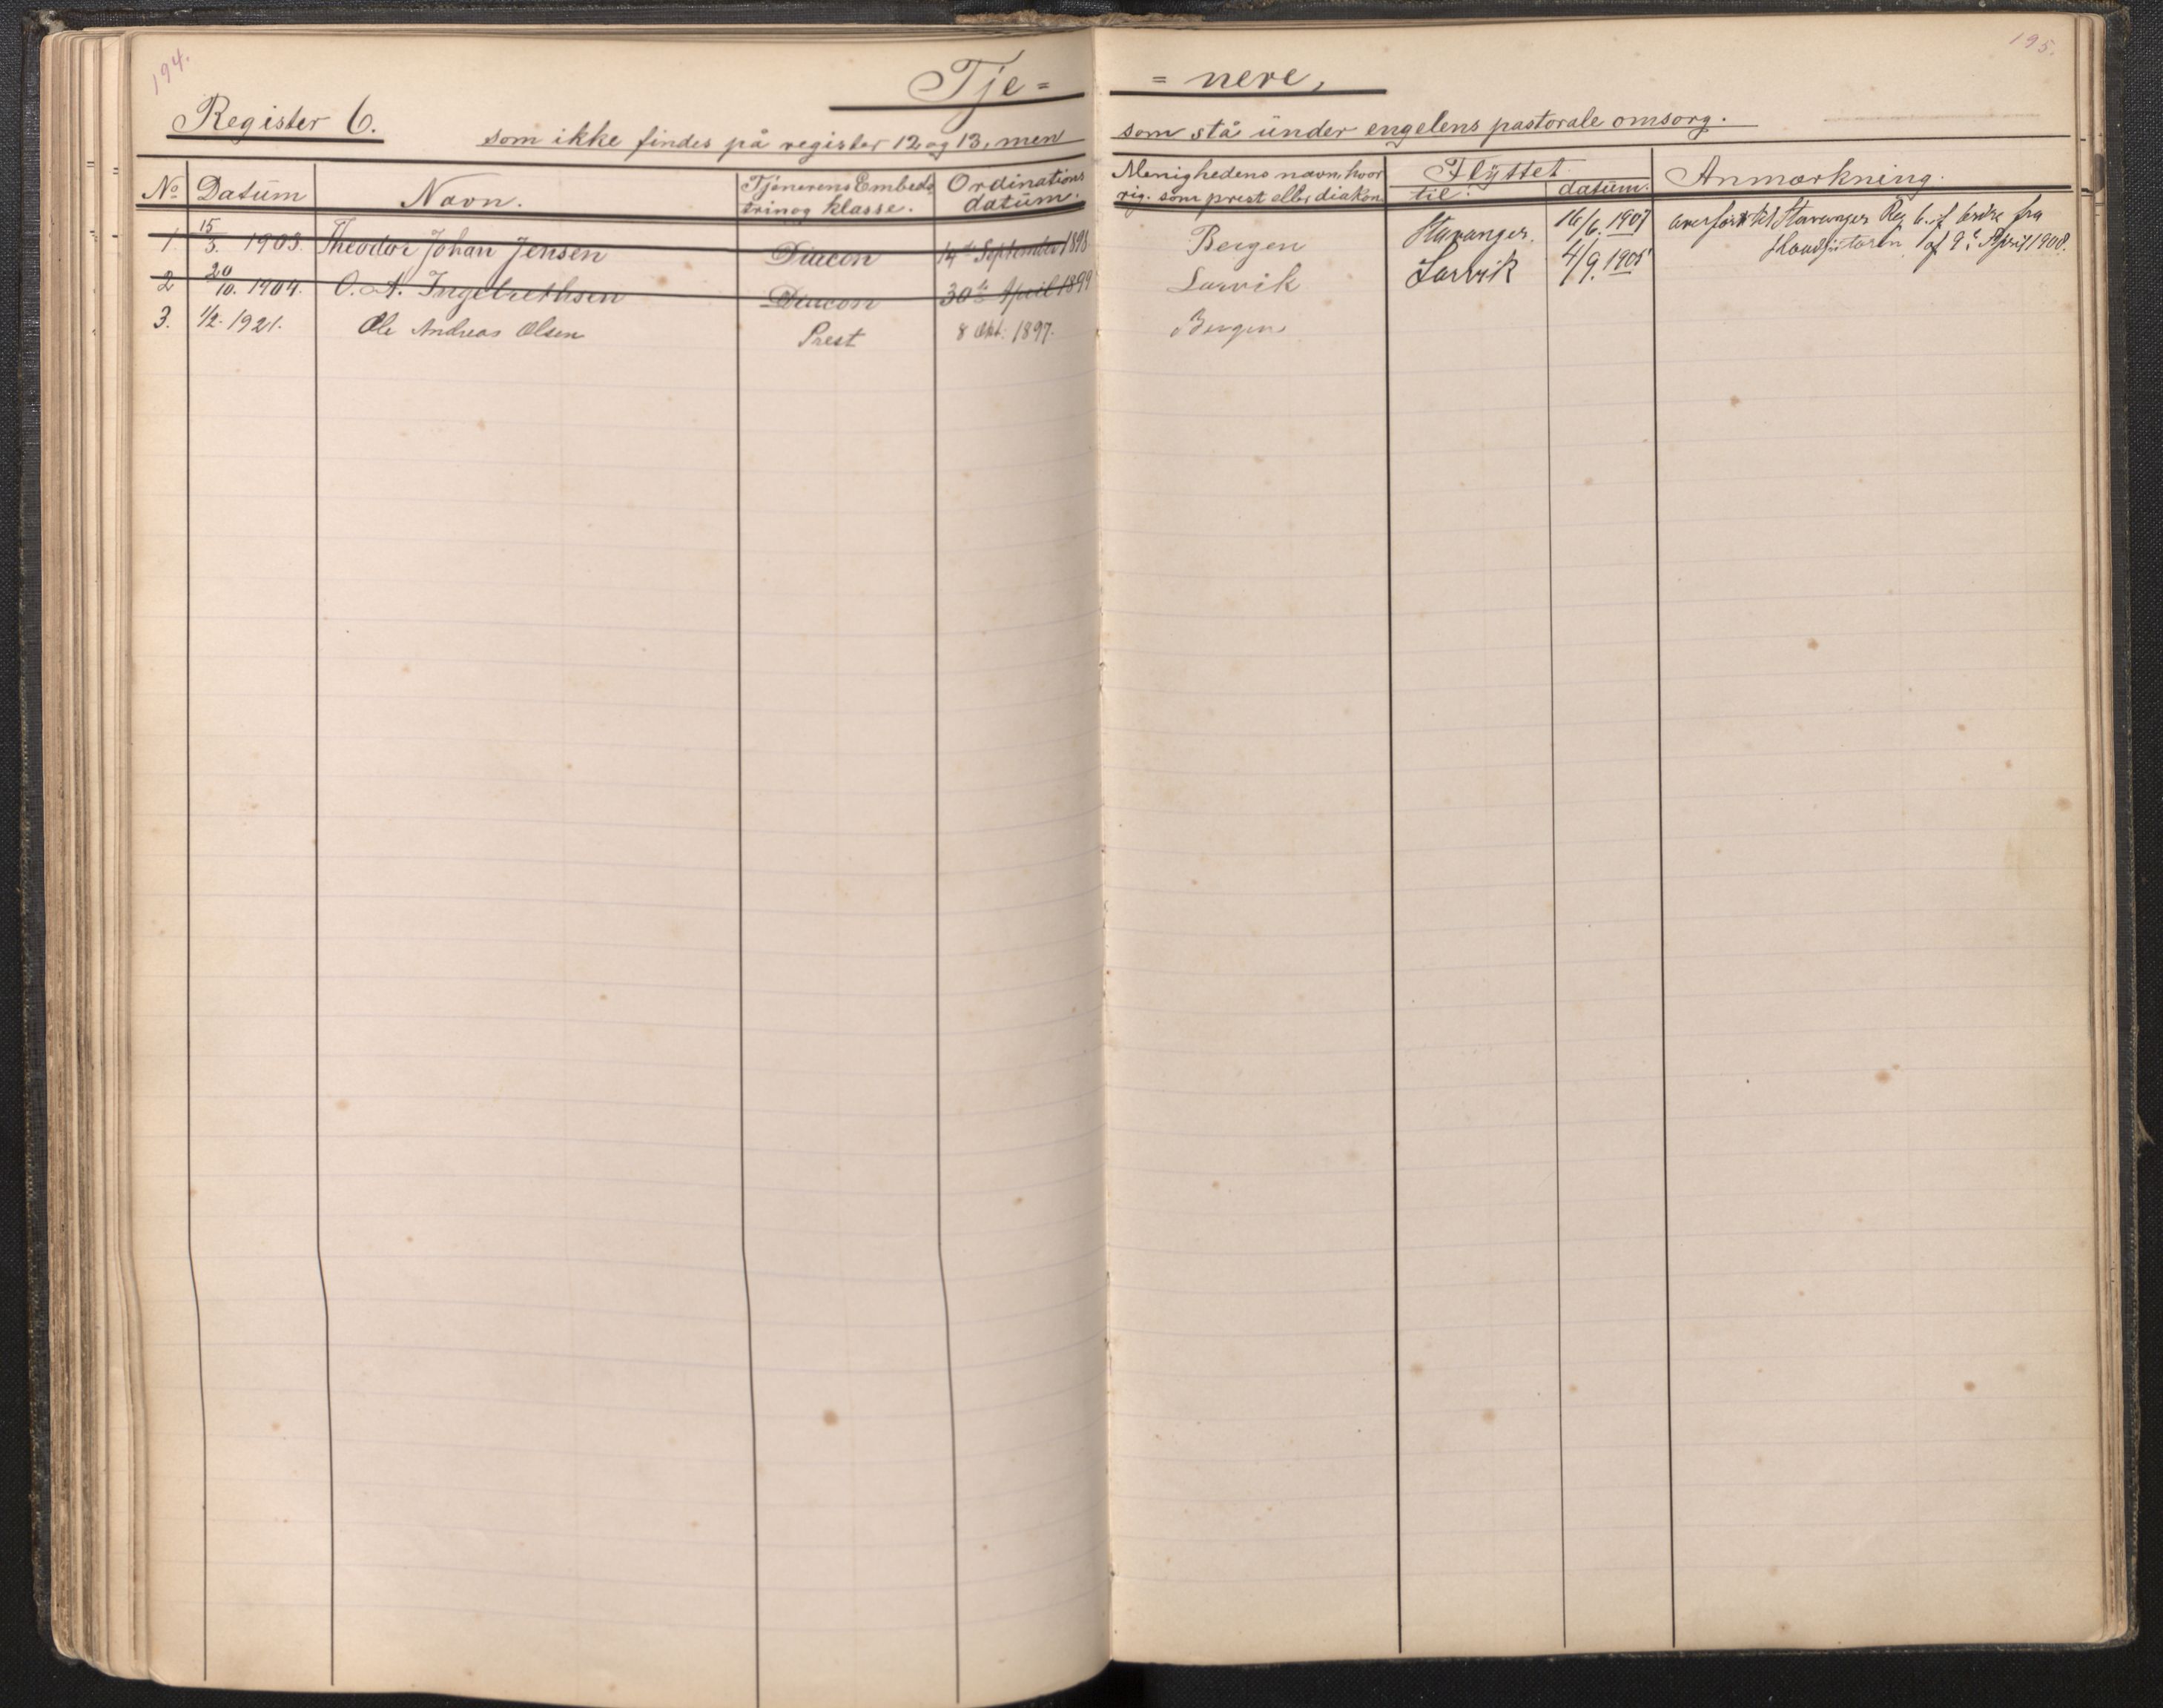 194.
195.
Tje= =nere,
Register 6.
som ikke findes på register 12 og 13, men som stå ünder engelens pastorale omsorg.
No Datüm Navn. Tjenerens Embeds trin og klasse. Ordinations datüm. Menighedens navn, hvor rig. som prest eller diakon Flÿttet til: datüm. Anmærkning.
1. 15/3. 1903. Theodor Johan Jensen Diacon 14de September 1898 Bergen Stavanger. 16/6. 1907 overført til Stavanger Reg 6. if. ordre fra
Koadjutoren af 9de April 1908.
2 20/10. 1904. O. A. Ingebrethsen Diacon 30te April 1899 Larvik Larvik 4/9. 1905
3. 1/2. 1921. Ole Andreas Olsen Prest 8 Okt. 1897. Bergen